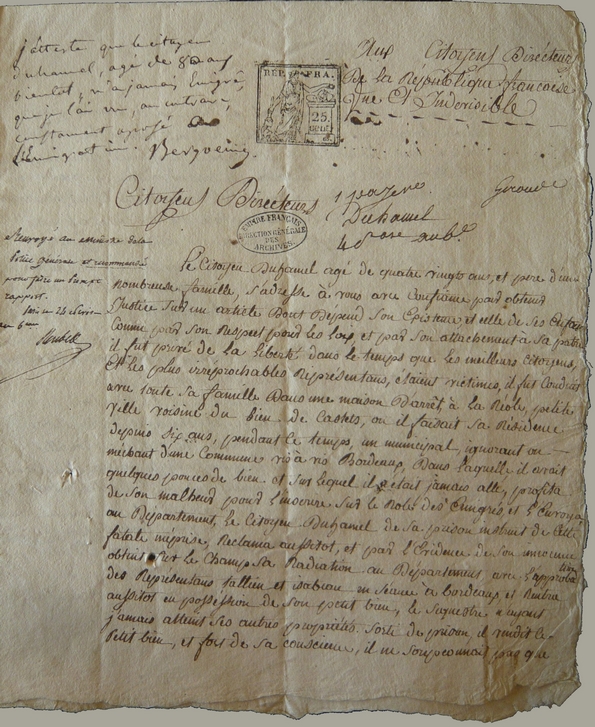 j'atteste que le citoyen
Duhamel, agé de 80 ans
bientôt, n'a jamais Emigré,
que je l'ai vu, au contraire,
constament opposé à
L'émigration. Bergoeing
REP. FRA.
25.
CENT.
Aux Citoyens Directeurs
De la République française
Une Et Indivisible
Citoyens Directeurs
1 pazone
Gironde
Duhamel
EMPIRE FRANÇAIS
DIRECTION GÉNÉRALE
DES
ARCHIVES.
Renvoyé au Ministre de la
Police générale et recommandé
pour faire un prompt
rapport.
Le Citoyen Duhamel agé de quatre vingt ans, et pere d'une
nombreuse famille, s'adresse à vous avec Confiance pour obtenir
Justice sur un article Dont Dépend son Existence et celle de ses Enfans
Connu par son Respect pour les loix, et par son attachement à sa patrie
il fut privé de la liberté dans le temps que les meilleurs Citoyens,
Et les plus irréprochables Représentans, étaient victimes, il fut Conduit
avec toute sa famille Dans une maison D'arrêt, à la Réole, petite
ville voisine du bien de Castets, ou il faisait sa Résidence
depuis dix ans, pendant ce temps, un municipal ignorant ou
méchant d'une Commune vis à vis Bordeaux, Dans laquelle il avait
quelques pouces de bien et sur lequel il n'etait jamais allé, profita
de son malheur pour l'inscrire sur le Role des Emigrés et l'Envoya
au Département, le Citoyen Duhamel de sa prison instruit de cette
fatale méprise, Reclama aussitot, et par l'Evidence de son innocence
obtint sur le Champ sa Radiation au Département, avec l'approbation
des Représentans tallien et isabeau en séance à bordeaux et Rentre
aussitot en possession de son petit bien, le sequestre n'ayant
jamais atteint ses autres propriétés. Sorti de prison, il vendit le
Petit bien, et fort de sa conscience, il ne soupçonnait pas que